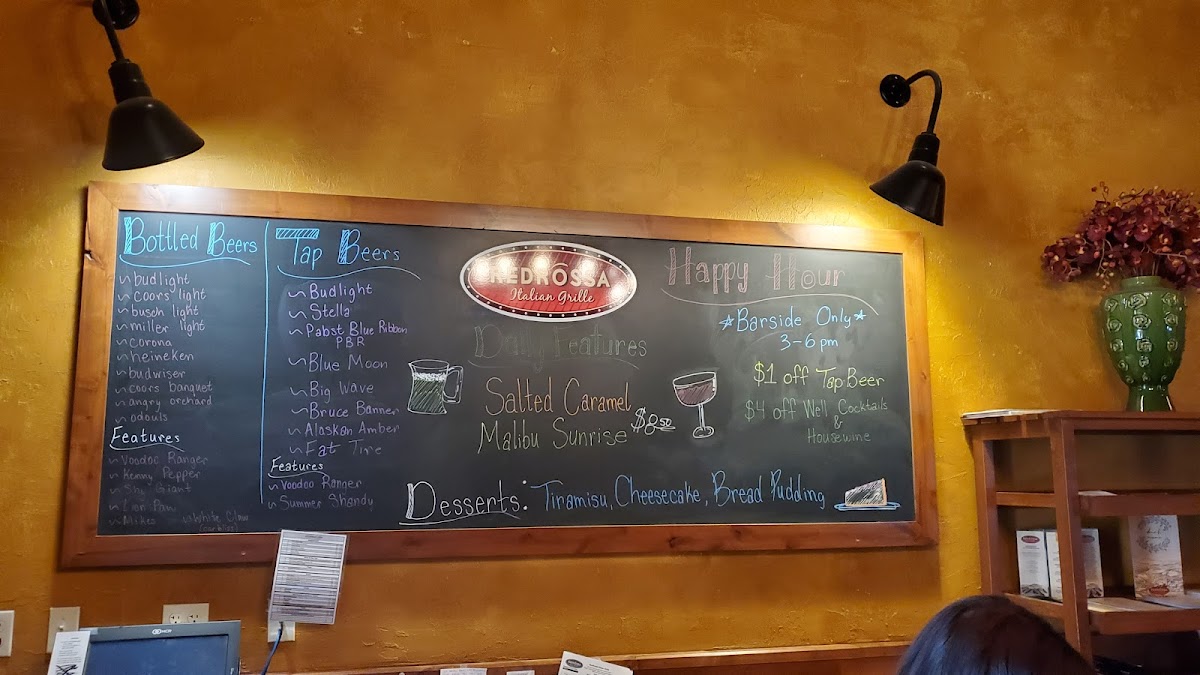 Bottled Beers
~ budlight
~ coors light
~ busch light
~ miller light
~ corona
~ heineken
~ budwiser
~ coors banquet
~ angry orchard
~ odouls
Features
~ Voodoo Ranger
~ Kenny Pepper
~ Shy Giant
~ Lion Paw
~ Mikes ~ White Claw
Tap Beers
~ Budlight
~ Stella
~ Pabst Blue Ribbon
PBR
~ Blue Moon
~ Big Wave
~ Bruce Banner
~ Alaskan Amber
~ Fat Tire
Features
~ Voodoo Ranger
~ Summer Shandy
REDROSSA
Italian Grille
Daily Features
Salted Caramel
Malibu Sunrise $8.50
Desserts: Tiramisu, Cheesecake, Bread Pudding
Happy Hour
*Barside Only*
3-6pm
$1 off Tap Beer
$4 off Well Cocktails
&
Housewine